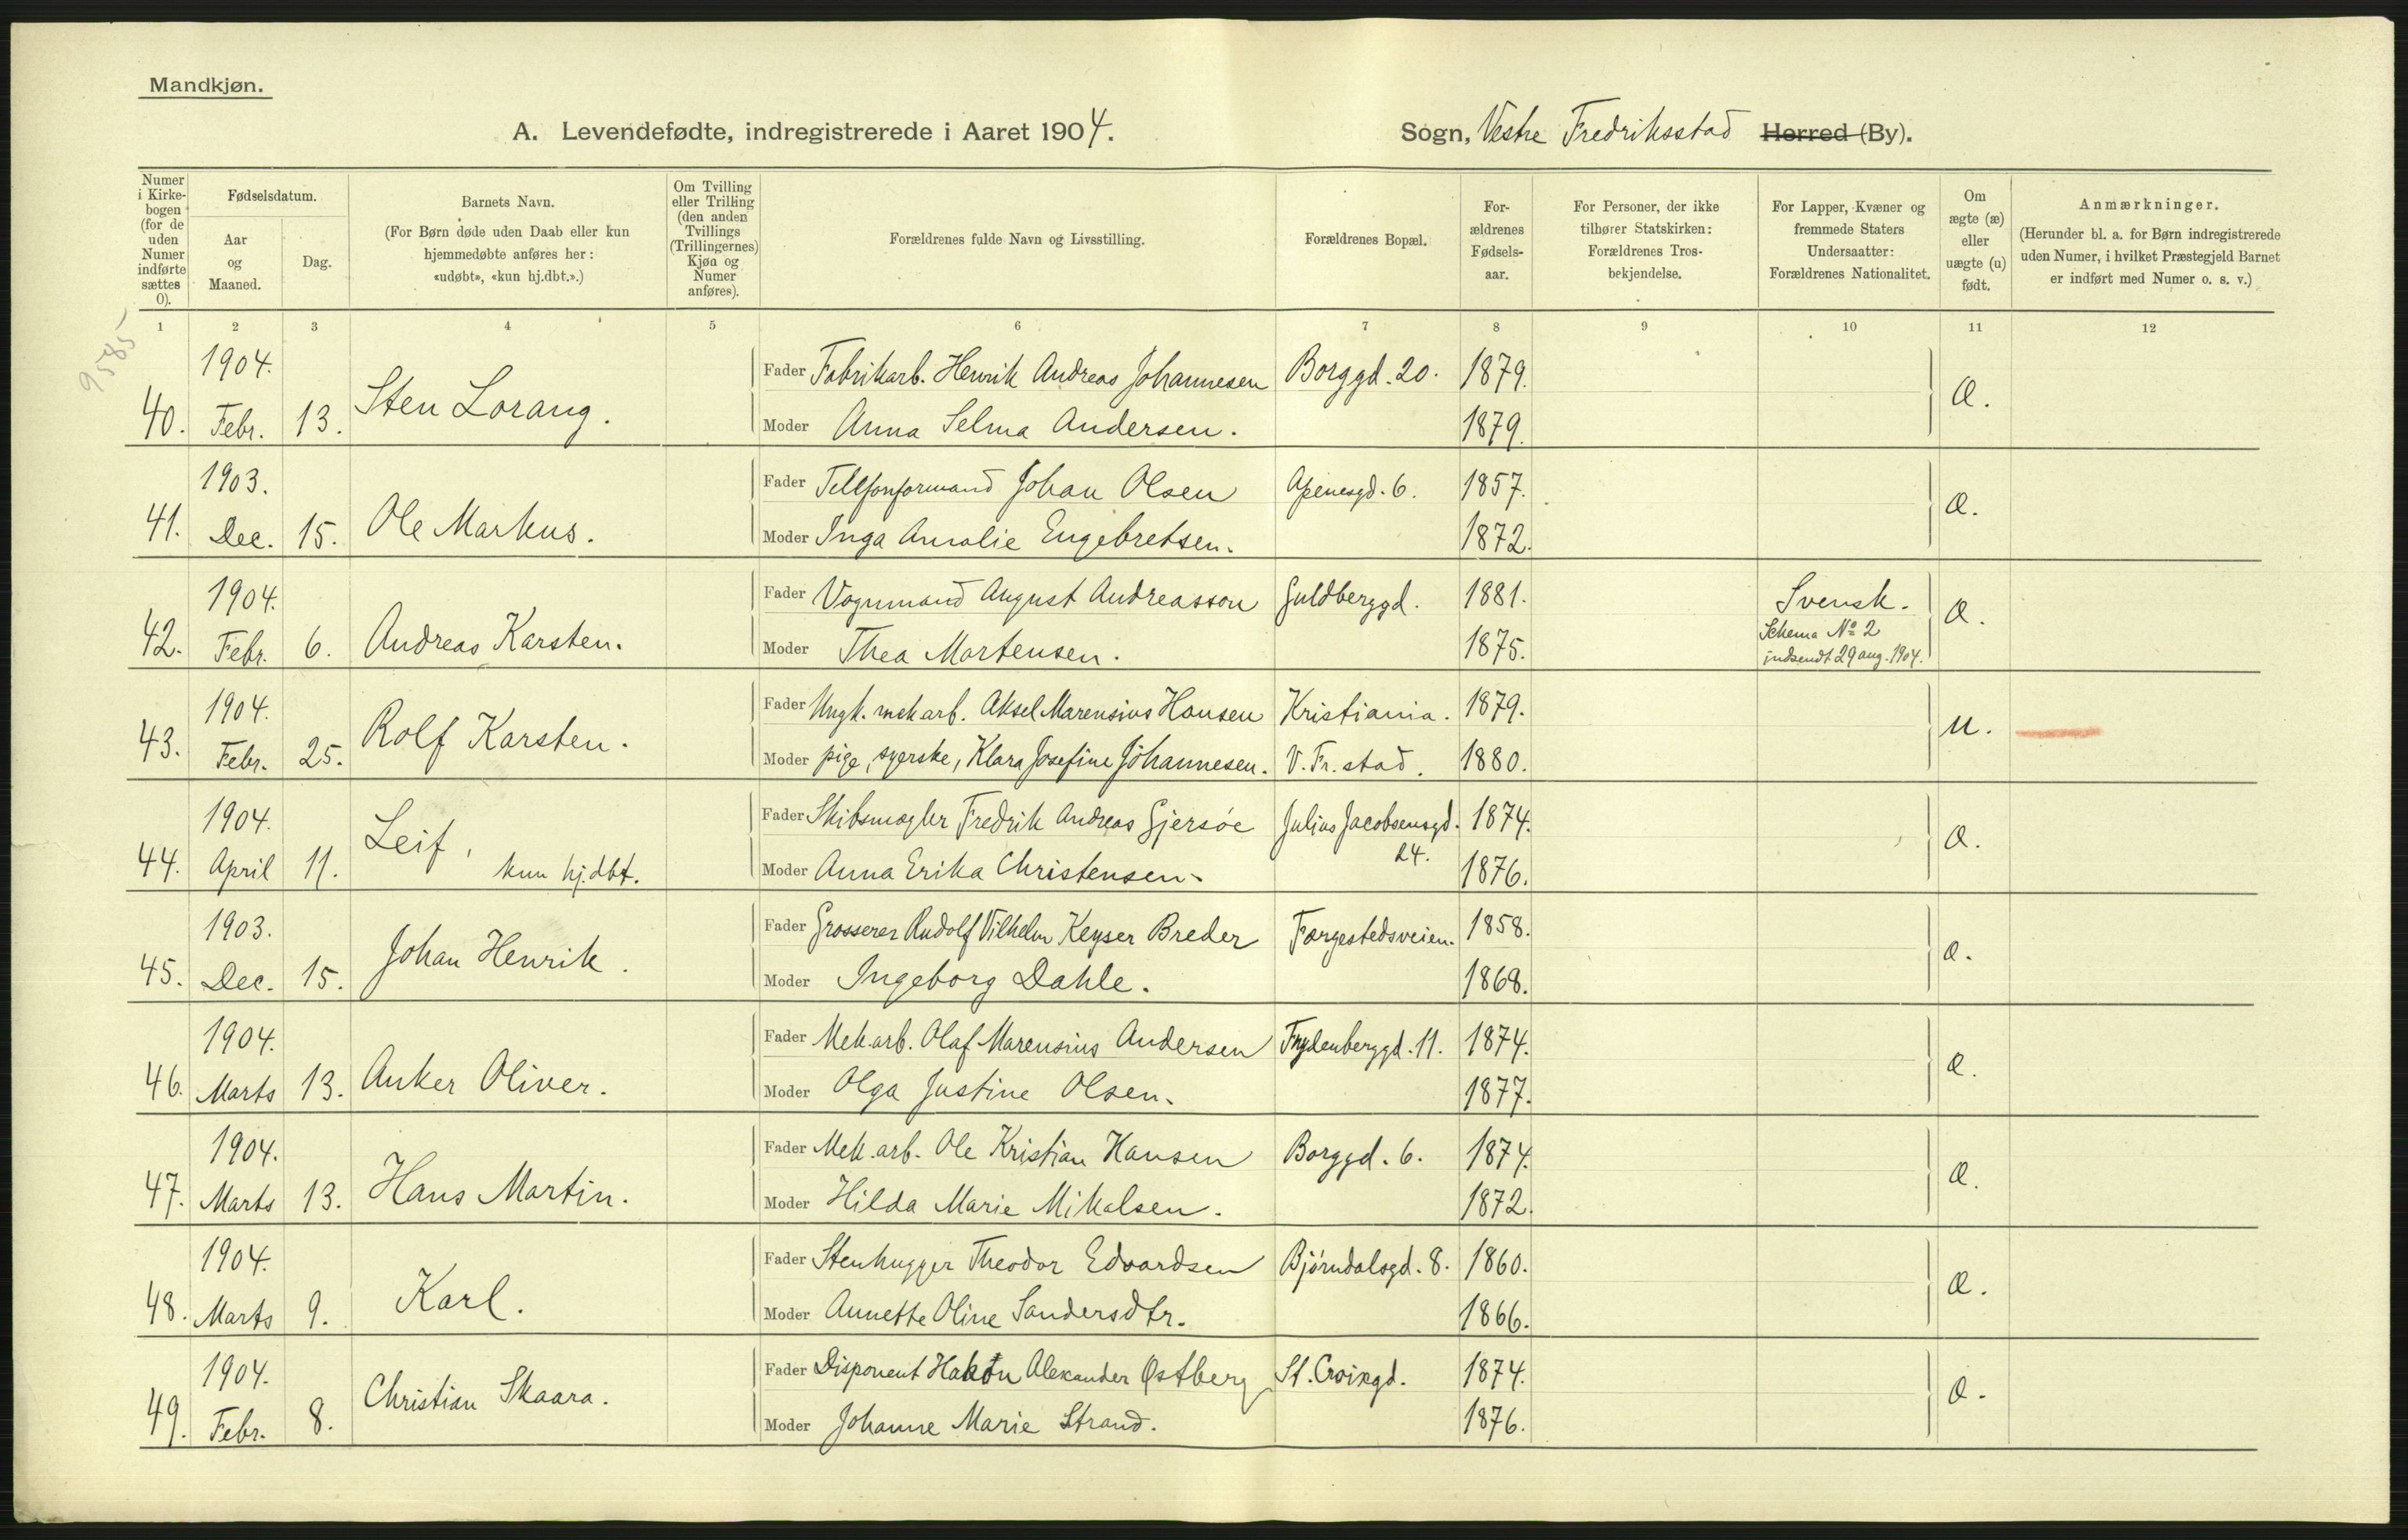 Mandkjøn.
A. Levendefødte, indregistrerede i Aaret 1904.
Sogn, Vestre Fredriksstad Herred (By).
Numer i Kirkebogen (for de uden Numer indførte sættes 0).
Fødselsdatum.
Aar og Maaned.
Dag.
Barnets Navn.
(For Børn døde uden Daab eller kun hjemmedøbte anføres her: «udøbt», «kun hj.dbt.».)
Om Tvilling eller Trilling (den anden Tvillings (Trillingernes) Kjøn og Numer anføres).
Forældrenes fulde Navn og Livsstilling.
Forældrenes Bopæl.
Forældrenes Fødselsaar.
For Personer, der ikke tilhører Statskirken: Forældrenes Trosbekjendelse.
For Lapper, Kvæner og fremmede Staters Undersaatter: Forældrenes Nationalitet.
Om ægte (æ) eller uægte (u) født.
Anmærkninger.
(Herunder bl. a. for Børn indregistrerede uden Numer, i hvilket Præstegjeld Barnet er indført med Numer o. s. v.)
1 2 3 4 5 6 7 8 9 10 11 12
9585
1904.
40. Febr. 13. Sten Lorang.
Fader Fabrikarb. Henrik Andreas Johannesen Borggd. 20. 1879. Æ.
Moder Anna Selma Andersen. 1879.
1903.
41. Dec. 15. Ole Markus.
Fader Telefonformand Johan Olsen Apenesgd. 6. 1857. Æ.
Moder Inga Amalie Engebretsen. 1872.
1904.
42. Febr. 6. Andreas Karsten.
Fader Vognmand August Andreasson Guldberggd. 1881. Svensk. Æ.
Moder Thea Mortensen. 1875. Schema № 2
indsendt 29 aug. 1904.
1904.
43. Febr. 25. Rolf Karsten.
Fader Ungk. mek arb. Aksel Marensius Hansen Kristiania. 1879. U.
Moder pige, syerske, Klara Josefine Johannesen. V. Fr. stad. 1880.
1904.
44. April 11. Leif, kun hj.dbt.
Fader Skibsmægler Fredrik Andreas Gjersøe Julius Jacobsensgd. 24. 1874. Æ.
Moder Anna Erika Christensen. 1876.
1903.
45. Dec. 15. Johan Henrik.
Fader Grosserer Rudolf Vilhelm Keyser Breder Færgestedsveien. 1858. Æ.
Moder Ingeborg Dahle. 1868.
1904.
46. Marts 13. Anker Oliver.
Fader Mek.arb. Olaf Marensius Andersen Frydenberggd. 11. 1874. Æ.
Moder Olga Justine Olsen. 1877.
1904.
47. Marts 13. Hans Martin.
Fader Mek.arb. Ole Kristian Hansen Borggd. 6. 1874. Æ.
Moder Hilda Marie Mikalsen. 1872.
1904.
48. Marts 9. Karl.
Fader Stenhugger Theodor Edvardsen Bjørndalsgd. 8. 1860. Æ.
Moder Annette Oline Sandersdtr. 1866.
1904.
49. Febr. 8. Christian Skaara.
Fader Disponent Hakon Alexander Østberg St. Croixgd. 1874. Æ.
Moder Johanne Marie Strand. 1876.